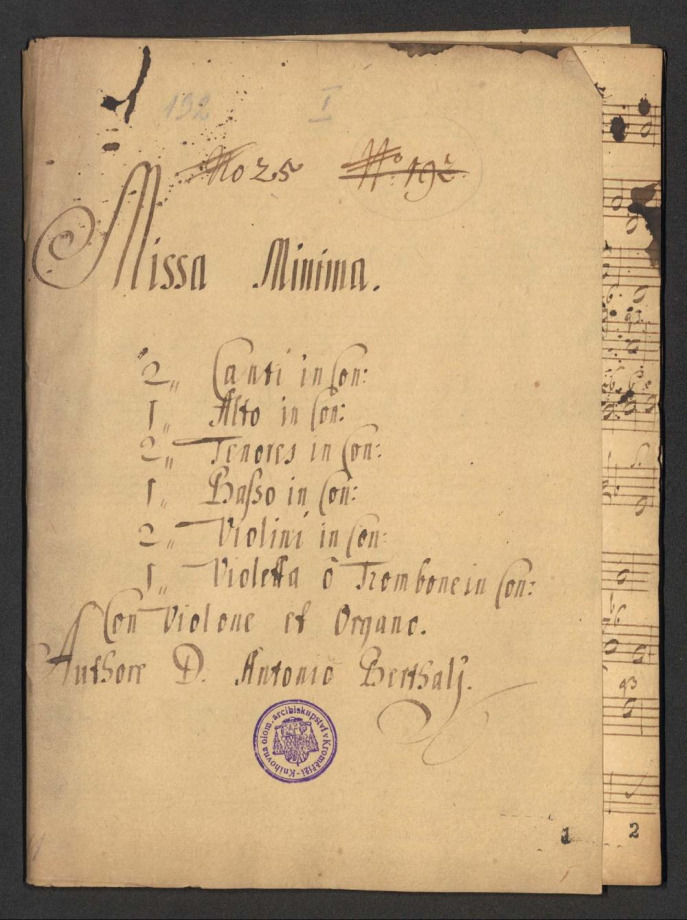 192 I
No 25 No 192.
Missa Minima.
2 „ Canti in Con:
1 „ Alto in Con:
2 „ Tenores in Con:
1 „ Baſso in Con:
2 „ Violini in Con:
1 „ Violetta ò Trombone in Con:
Con Violone et Organo.
Authore D. Antonio Berthalj.
Knihovna olom. arcibiskupství v Kroměříži
1 2